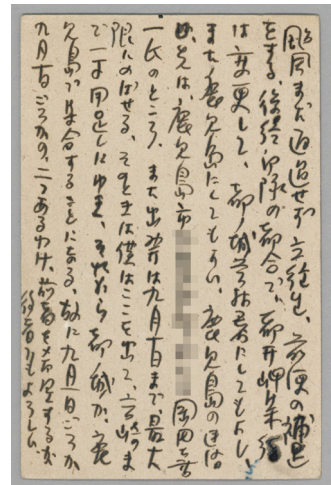 颱風まだ通過せず立往生、前便の補足
をする、後続部隊の都合で、都井岬集結
は変更して、都城等お君にしてもよし、
また鹿児島にしてもよい、鹿児島の連絡
先は、鹿児島市 岡田喜
一氏のところ、また出発は九月一日まで、最大
限にのばせる、そのときは僕はここを出て、宮崎ま
で一寸用足しにゆき、それから都城か、鹿
児島で集合することになる、故に九月一日ごろか
九月五日ごろかの、二つあるわけ、前者を希望するが
後者でもよろしい